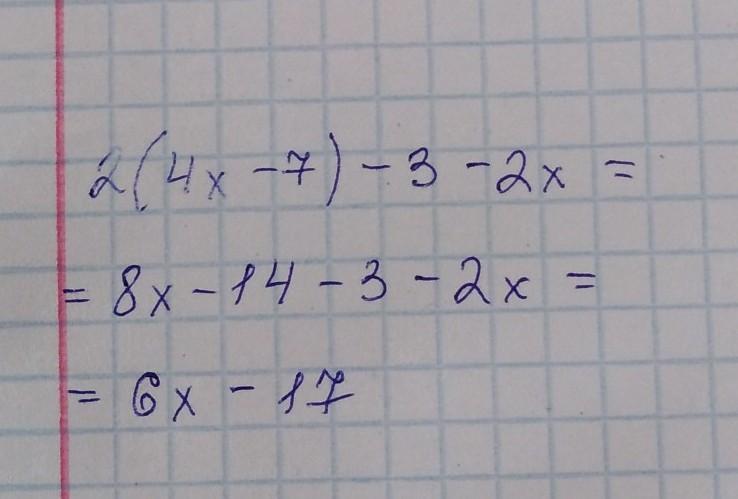 2(4x - 7) - 3 - 2x =
= 8x - 14 - 3 - 2x =
= 6x - 17